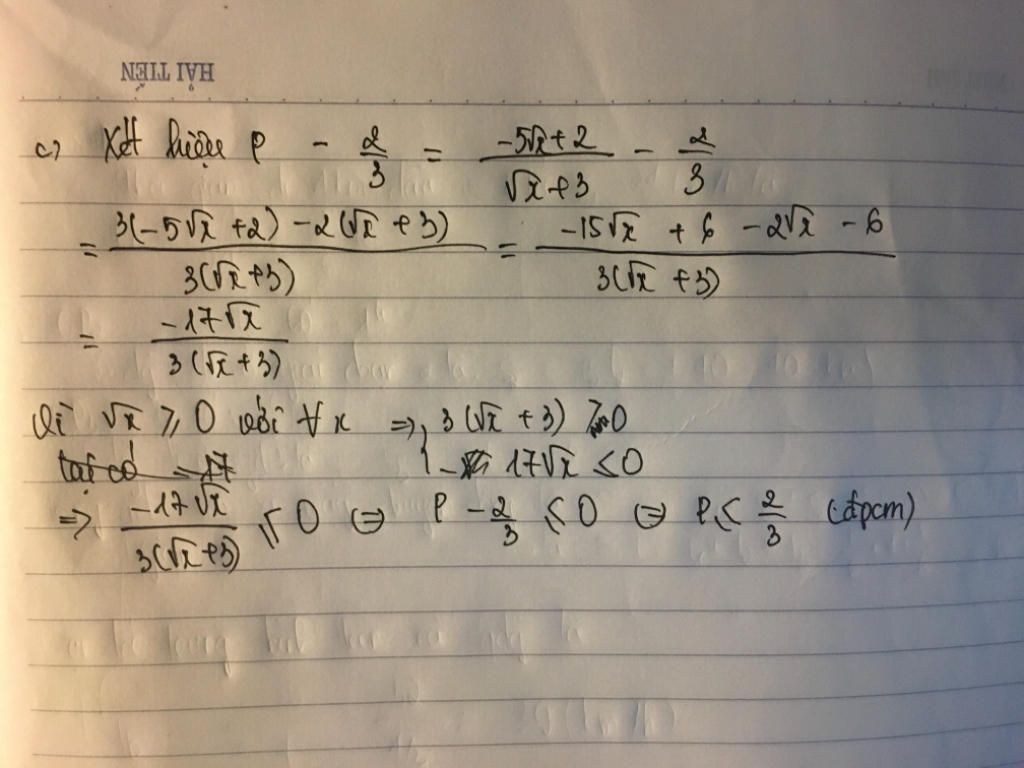 HẢI TIẾN
c) Xét hiệu P - 2/3 = (-5√x + 2)/(√x + 3) - 2/3
= (3(-5√x + 2) - 2(√x + 3))/(3(√x + 3)) = (-15√x + 6 - 2√x - 6)/(3(√x + 3))
= (-17√x)/(3(√x + 3))
Vì √x ⩾ 0 với ∀x ⇒ { 3(√x + 3) ⩾ 0
-17√x ⩽ 0
⇒ (-17√x)/(3(√x + 3)) ⩽ 0 ⇔ P - 2/3 ⩽ 0 ⇔ P ⩽ 2/3 (đpcm)